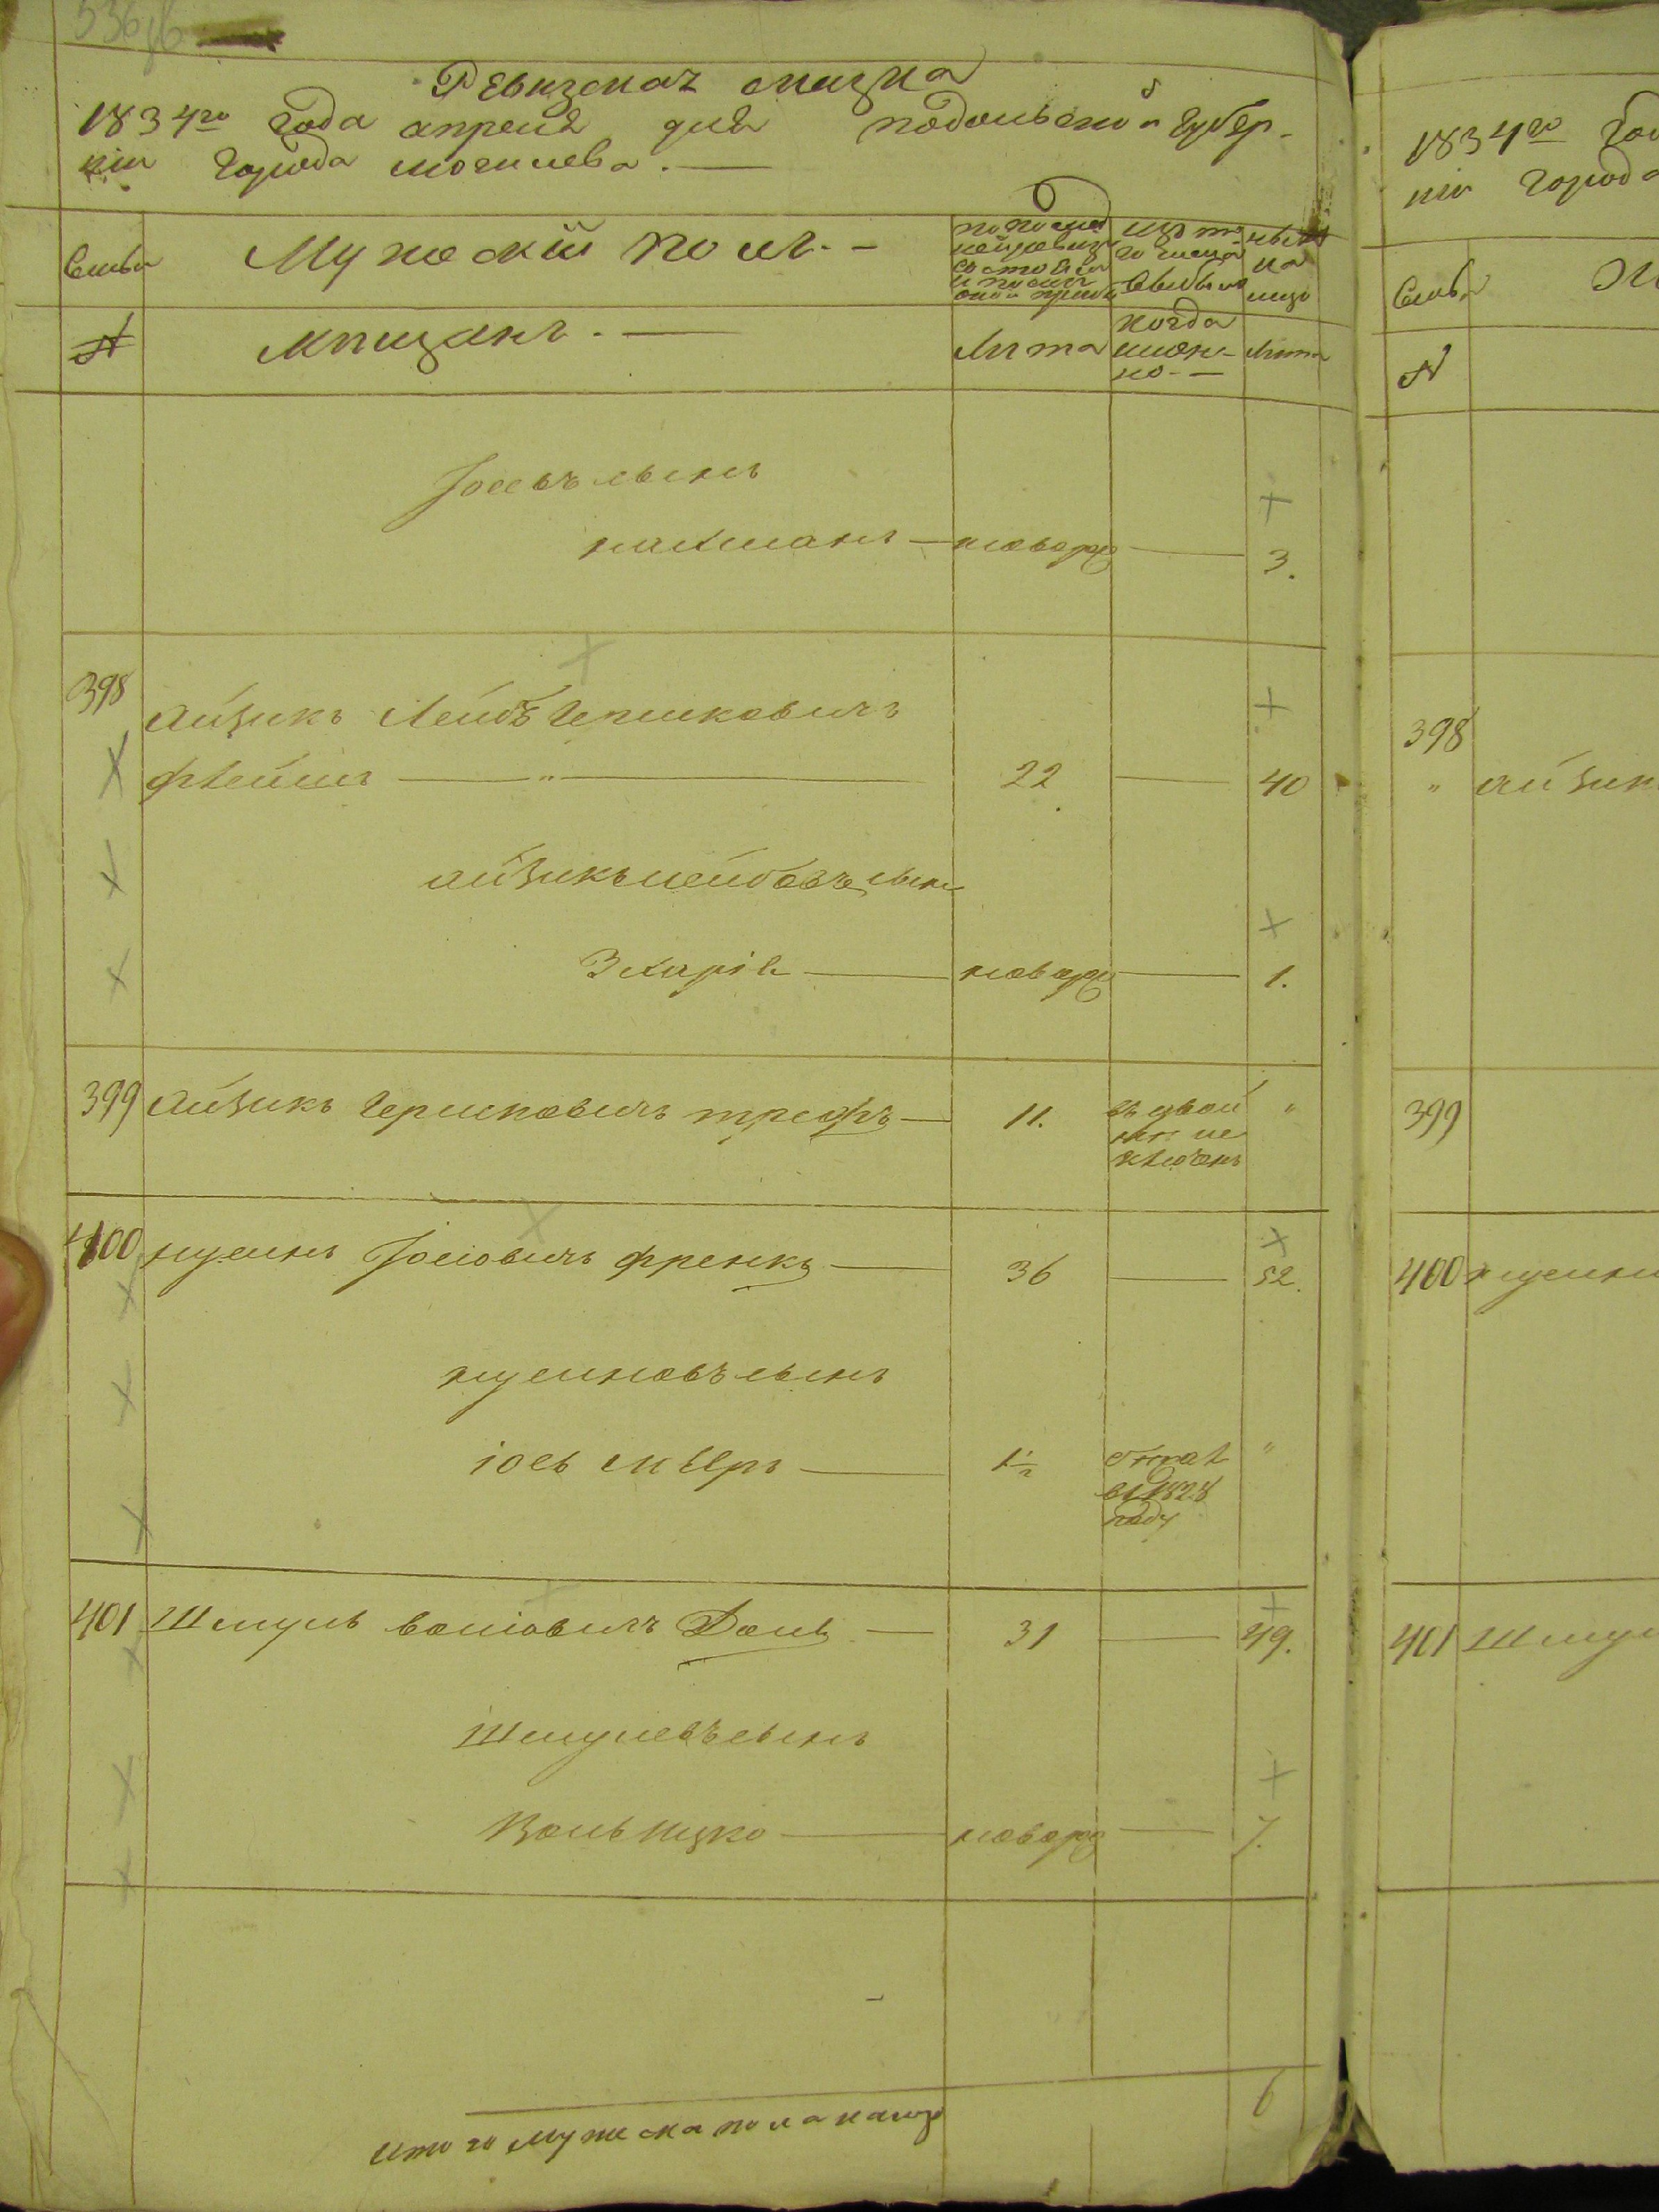 536об
Ревизская сказка
1834го года апреля дня Подольской Губер-
нiи города Могилева. —
Семьи
Мужескiй полъ. —
по последней ревизiи состояло и после оной прибыло
изъ того числа выбыло
ныне на лицо
№
мещанъ. —
Лета
когда именно —
Лета
Iосевъ сынъ
нахманъ — новорож — 3.
398 Айзикъ Лейбъ Гершковичъ
флейшъ — " — 22 — 40
айзикъ лейбовъ сынъ
Захарiя — новорож — 1.
399 Айзикъ Гершковичъ трефъ — 11. въ двой
не ис
ключенъ "
400 нусинъ Iосiовичъ френкъ — 36 — 52.
нусиновъ сынъ
iось мееръ — 1/2 отдат
въ 1828
году "
401 Шмуль волiовичъ Доль — 31 — 49.
Шмулевъ сынъ
Воль ицко — новорож — 7.
итого мужеска пола налицо 6
1834го Год
нiи города
Семьи
№
398
" айзик
399
400 нусин
401 Шмул